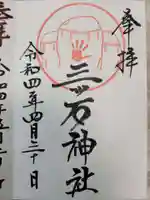 奉拝
三ツ石神社
令和四年四月二十日